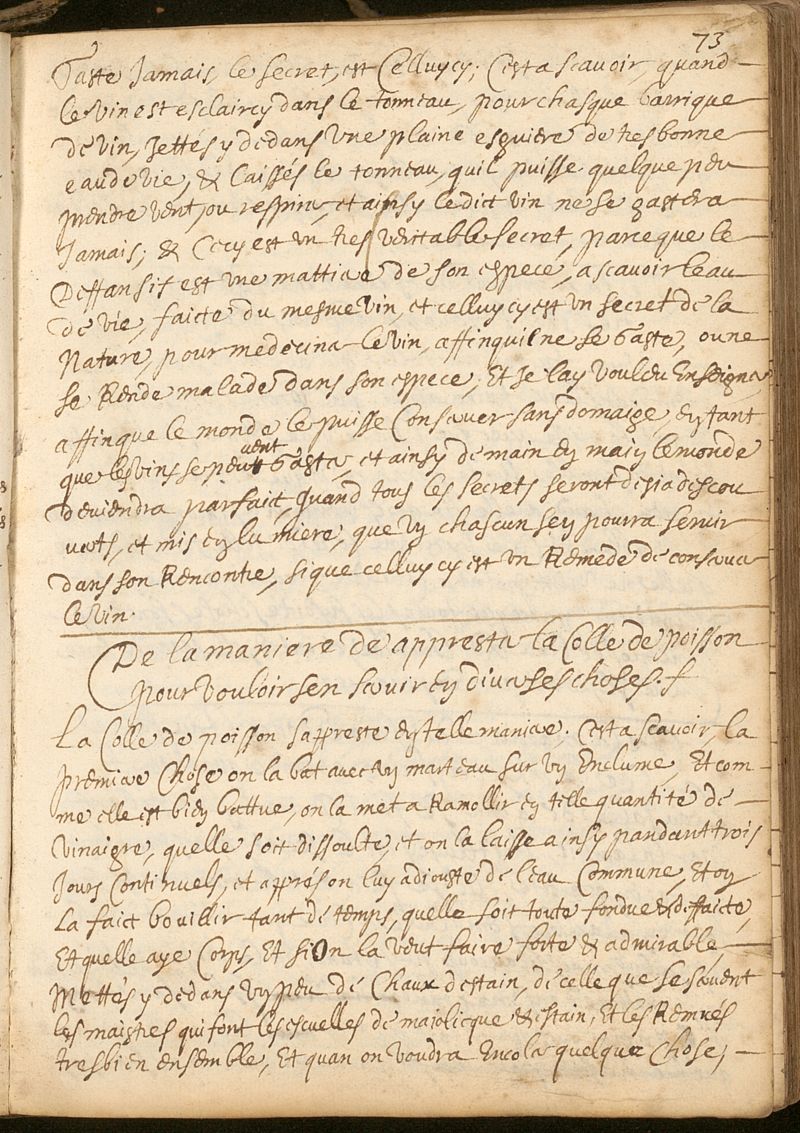 73
Gaste Jamais, le secret, est Celluycy; C'est a scavoir, quand
le vin est esclaircy dans le tonneau, pour chasque barrique
de vin, Jettés y dedans Une plaine esguiere de tres bonne
eau de vie, & laissés le tonneau, quil puisse quelque peu
prendre vent, ou respirer, et ainsy le dict vin ne se gastera
Jamais; & Cecy est un tres veritable secret, parce que le
Deffansif est une mattiere de son espece, a scavoir l'eau
de vie, faicte du mesme vin, et celluy cy est un secret de la
Nature, pour medeciner le vin, affin quil ne se Gaste, ou ne
se Rende malade dans son espece, Et Je l'ay vouleu Enseigner
affin que le monde le puisse Conserver sans domaige, en tant
que les vins se peuvent Gaster, et ainsy de main en main le monde
deviendra parfaict, Quand tous les secrets seront desia descou
verts, et mis en lumiere, que un chascun s'en pourra servir
dans son Rencontre, si que celluy cy est un Remede de conserver
le vin.
De la maniere de apprester la Colle de poisson
pour vouloir s'en servir en diverses choses.
La Colle de poisson s'appreste en telle maniere. C'est a scavoir, la
premiere Chose on la bat avec un marteau sur un Enclume, Et com-
me elle est bien battue, on la met a Ramollir en telle quantité de
vinaigre, quelle soit dissoulte, et on la laisse ainsy pandant trois
Jours Continuels, et apprés on luy adiouste de l'eau Commune, Et on
La faict bouillir tant de temps, quelle soit toute fondue & deffaicte,
Et quelle aye Corps, Et si On la veut faire forte & admirable,
Mettés y dedans un peu de Chaux d'estain, de celle que se servent
les maistres qui font les escuelles de maiolicque & estain, Et les Remués
tres bien ensemble, Et quan on voudra Encoler quelque Chose;